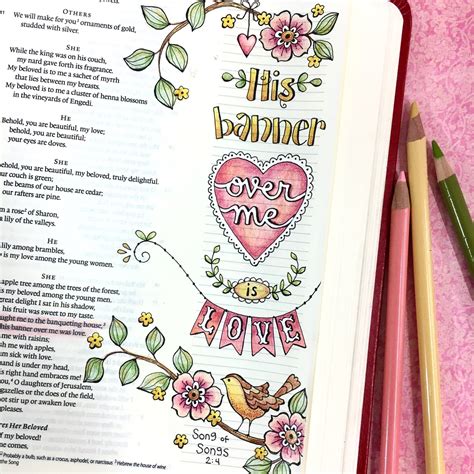 Others
We will make for you ornaments of gold,
studded with silver.
She
While the king was on his couch,
my nard gave forth its fragrance.
My beloved is to me a sachet of myrrh
that lies between my breasts.
My beloved is to me a cluster of henna blossoms
in the vineyards of Engedi.
He
Behold, you are beautiful, my love;
behold, you are beautiful;
your eyes are doves.
She
Behold, you are beautiful, my beloved, truly delightful.
couch is green;
the beams of our house are cedar;
our rafters are pine.
a rose of Sharon,
a lily of the valleys.
He
a lily among brambles,
is my love among the young women.
She
apple tree among the trees of the forest,
is my beloved among the young men.
great delight I sat in his shadow,
his fruit was sweet to my taste.
brought me to the banqueting house,
his banner over me was love.
me with raisins;
me with apples,
sick with love.
hand is under my head,
his right hand embraces me!
you, O daughters of Jerusalem,
gazelles or the does of the field,
not stir up or awaken love
pleases.
Adores Her Beloved
of my beloved!
he comes,
Probably a bulb, such as a crocus, asphodel, or narcissus Hebrew the house of wine
the Song
His
banner
over
me
is
LOVE
Song of
Songs
2:4